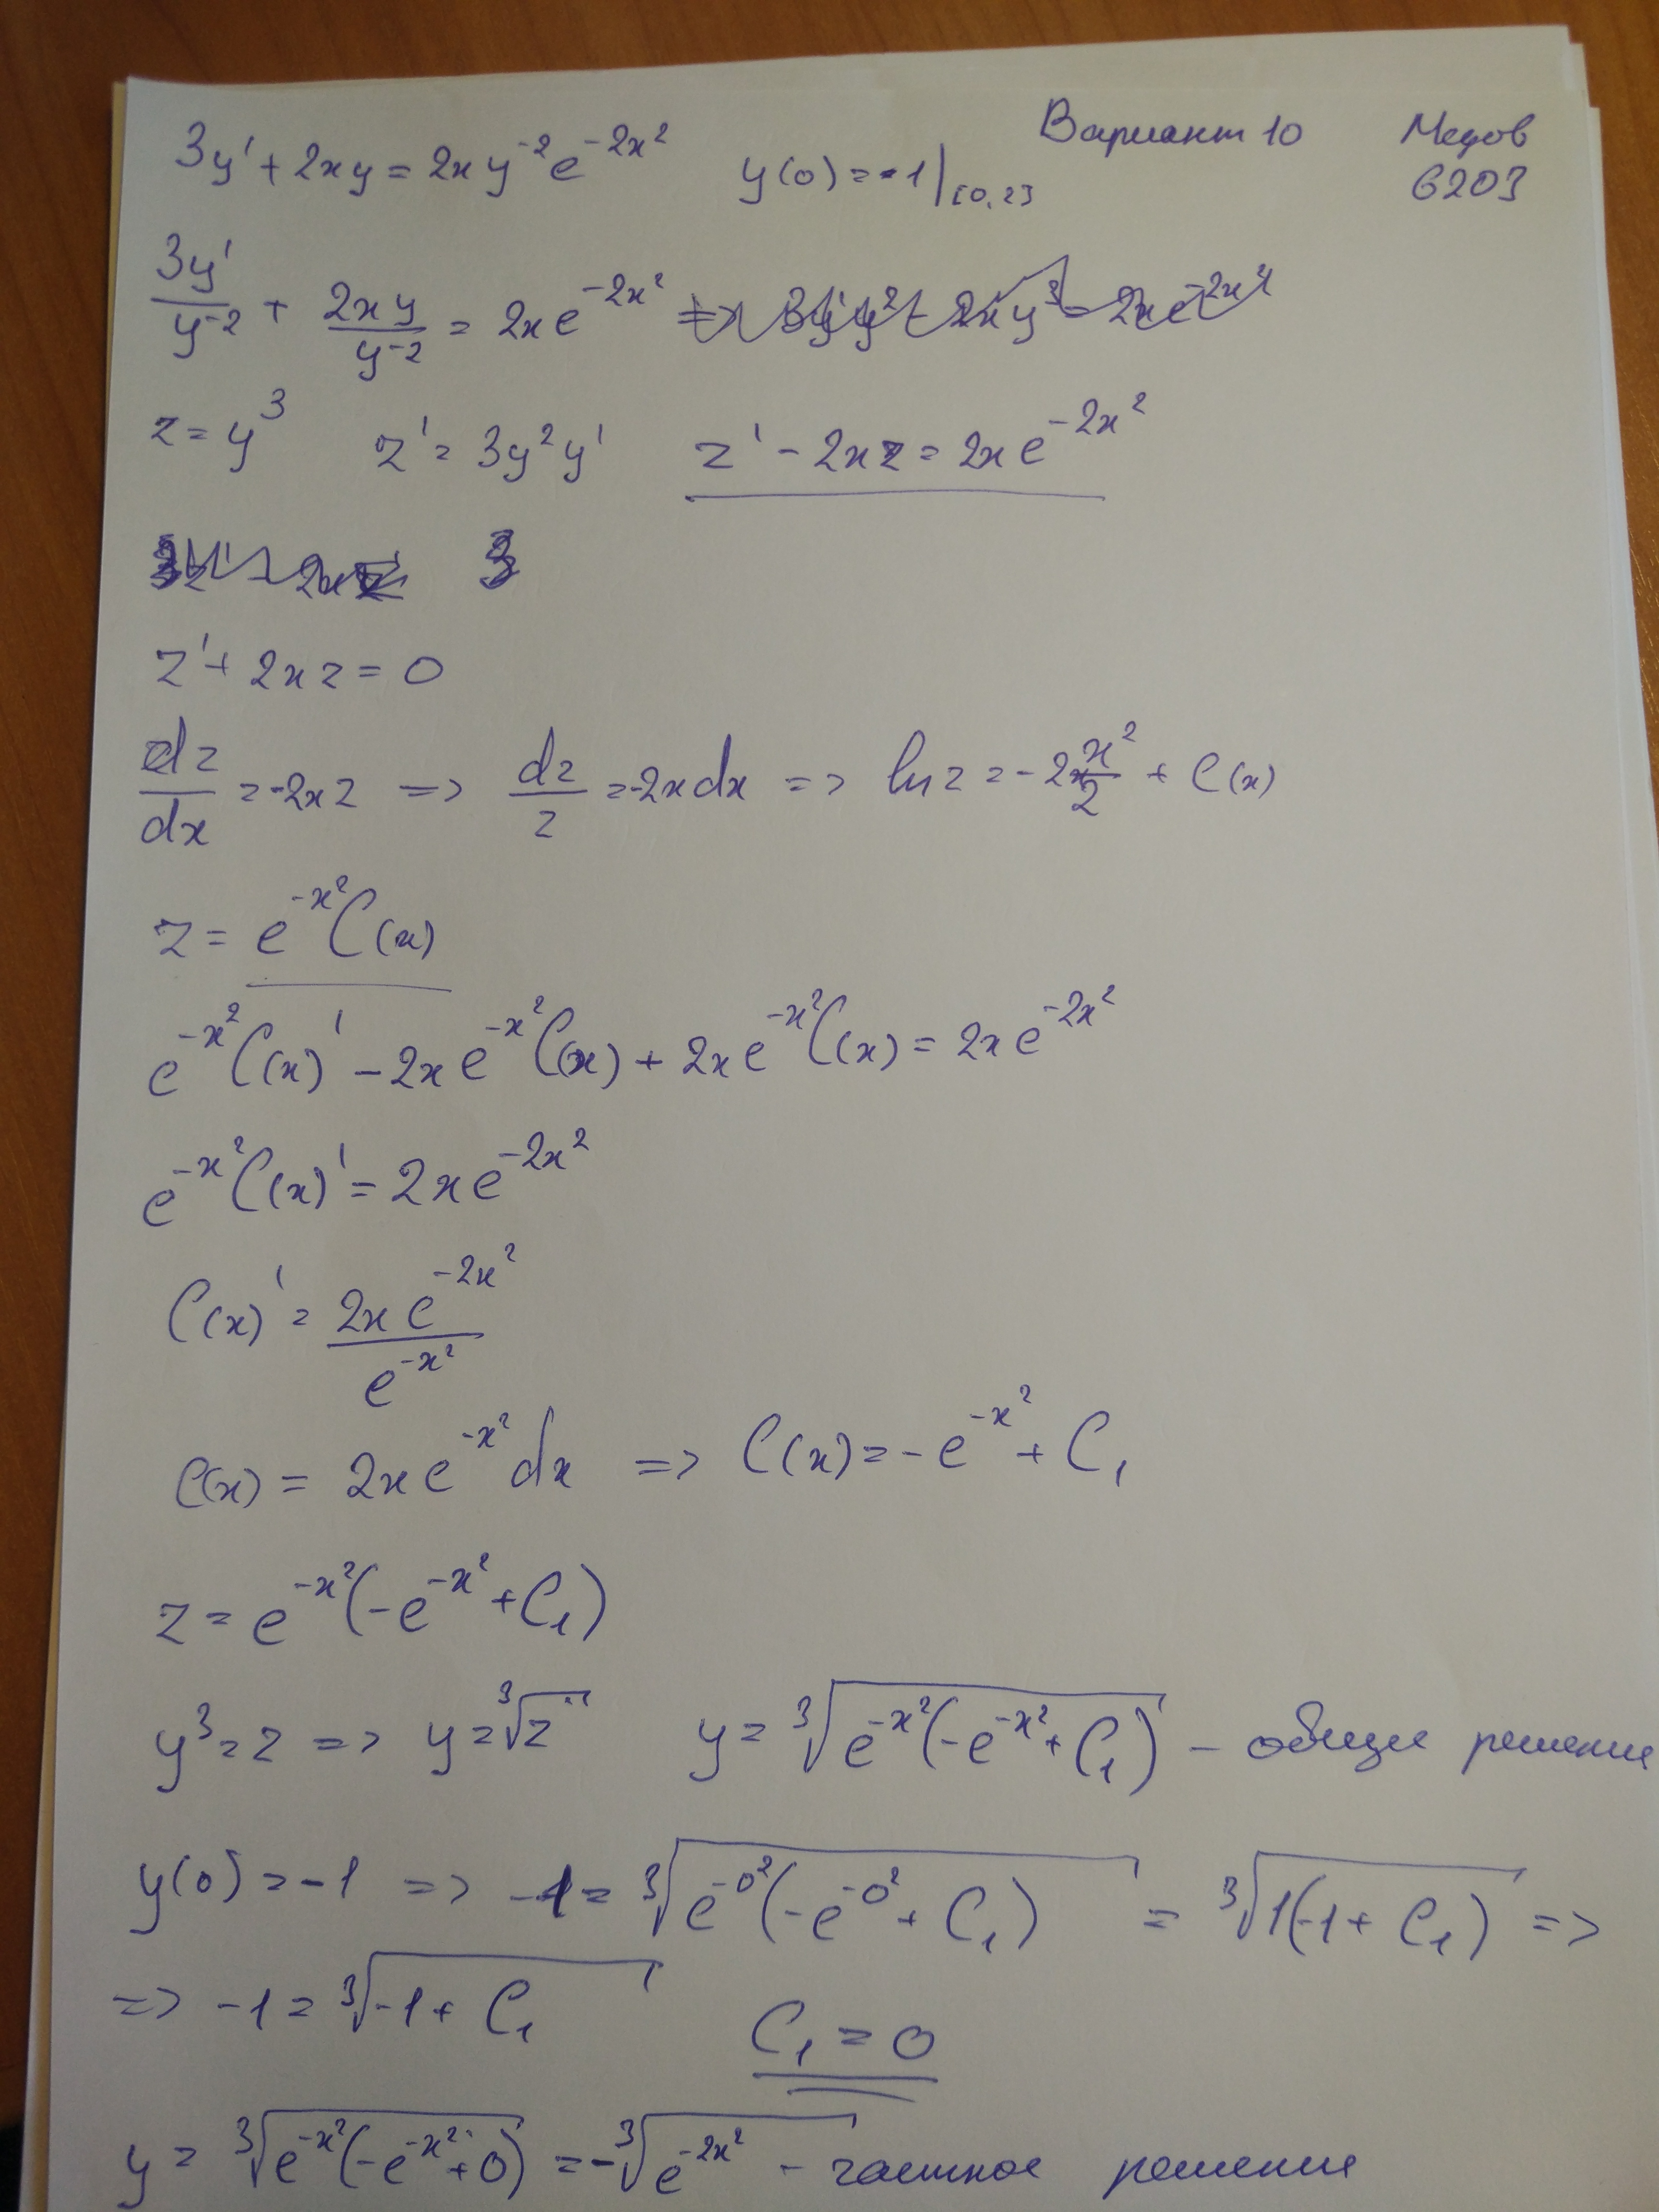 3y' + 2xy = 2xy⁻²e^(-2x²) y(0) = -1|[0,2] Вариант 10 Медов
6203
3y'/y⁻² + 2xy/y⁻² = 2xe^(-2x²)
z = y³ z' = 3y²y' z' - 2xz = 2xe^(-2x²)
z' + 2xz = 0
dz/dx = -2xz => dz/z = -2xdx => ln z = -2x²/2 + C(x)
z = e^(-x²)C(x)
e^(-x²)C(x)' - 2xe^(-x²)C(x) + 2xe^(-x²)C(x) = 2xe^(-2x²)
e^(-x²)C(x)' = 2xe^(-2x²)
C(x)' = 2xe^(-2x²)/e^(-x²)
C(x) = 2xe^(-x²)dx => C(x) = -e^(-x²) + C₁
z = e^(-x²)(-e^(-x²) + C₁)
y³ = z => y = ∛z y = ∛(e^(-x²)(-e^(-x²) + C₁)) - общее решение
y(0) = -1 => -1 = ∛(e^(-0²)(-e^(-0²) + C₁)) = ∛(1(-1 + C₁)) =>
=> -1 = ∛(-1 + C₁) C₁ = 0
y = ∛(e^(-x²)(-e^(-x²) + 0)) = -∛(e^(-2x²)) - частное решение